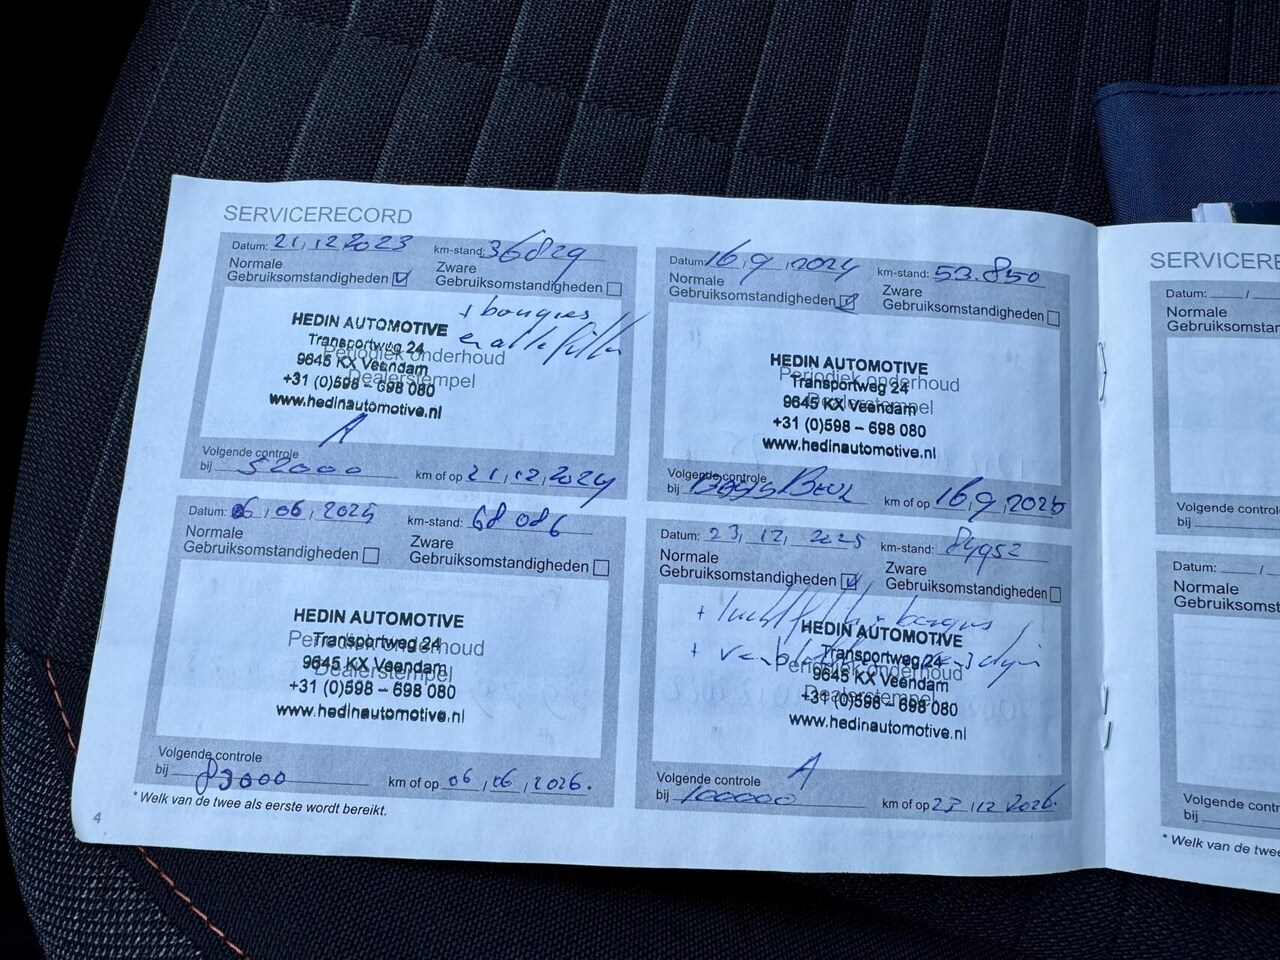 SERVICERECORD
Datum: 21,12,2023 km-stand: 36829
Normale
Gebruiksomstandigheden
Zware
Gebruiksomstandigheden
+ bougies
HEDIN AUTOMOTIVE
Transportweg 24
Periodiek onderhoud
9645 KX Veendam
Dealerstempel
+31 (0)598 – 698 080
www.hedinautomotive.nl
A
Volgende controle
bij 52000 km of op 21,12,2024
Datum: 16,9,2024 km-stand: 53.850
Normale
Gebruiksomstandigheden
Zware
Gebruiksomstandigheden
HEDIN AUTOMOTIVE
Periodiek onderhoud
Transportweg 24
Dealerstempel
9645 KX Veendam
+31 (0)598 – 698 080
www.hedinautomotive.nl
Volgende controle
bij km of op 16,9,2025
Datum: 06,06,2025 km-stand: 68 086
Normale
Gebruiksomstandigheden
Zware
Gebruiksomstandigheden
HEDIN AUTOMOTIVE
Periodiek onderhoud
Transportweg 24
9645 KX Veendam
Dealerstempel
+31 (0)598 – 698 080
www.hedinautomotive.nl
Volgende controle
bij 83000 km of op 06,06,2026.
Datum: 23,12,2025 km-stand: 84952
Normale
Gebruiksomstandigheden
Zware
Gebruiksomstandigheden
+ luchtfilter + bougies
HEDIN AUTOMOTIVE
Transportweg 24
Periodiek onderhoud
9645 KX Veendam
Dealerstempel
+31 (0)598 – 698 080
www.hedinautomotive.nl
A
Volgende controle
bij 100000 km of op 23,12,2026.
* Welk van de twee als eerste wordt bereikt.
4
SERVICERE
Datum: /
Normale
Gebruiksomstan
Volgende control
bij
Datum: /
Normale
Gebruiksomst
Volgende contr
bij
* Welk van de twee